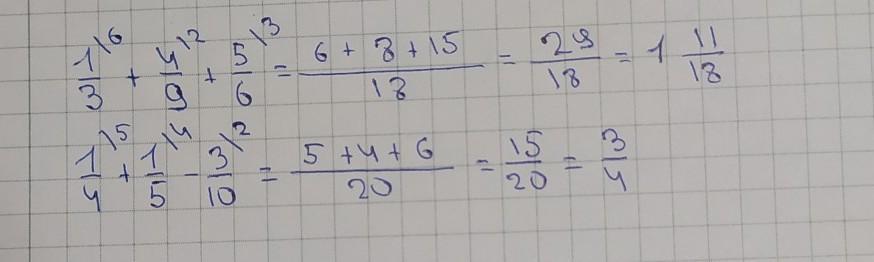 1/3\6 + 4/9\2 + 5/6\3 = (6 + 8 + 15)/18 = 29/18 = 1 11/18
1/4\5 + 1/5\4 - 3/10\2 = (5 + 4 + 6)/20 = 15/20 = 3/4